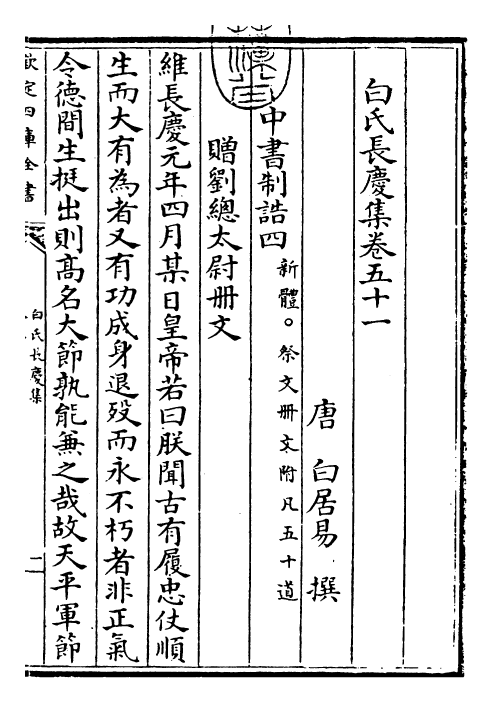 白氏長慶集卷五十一
唐 白居易 撰
中書制誥四 新體。祭文冊文附凡五十道
贈劉總太尉冊文
維長慶元年四月某日皇帝若曰朕聞古有履忠仗順
生而大有為者又有功成身退歿而永不朽者非正氣
令德間生挺出則髙名大節孰能兼之哉故天平軍節
欽定四庫全書
白氏長慶集
二